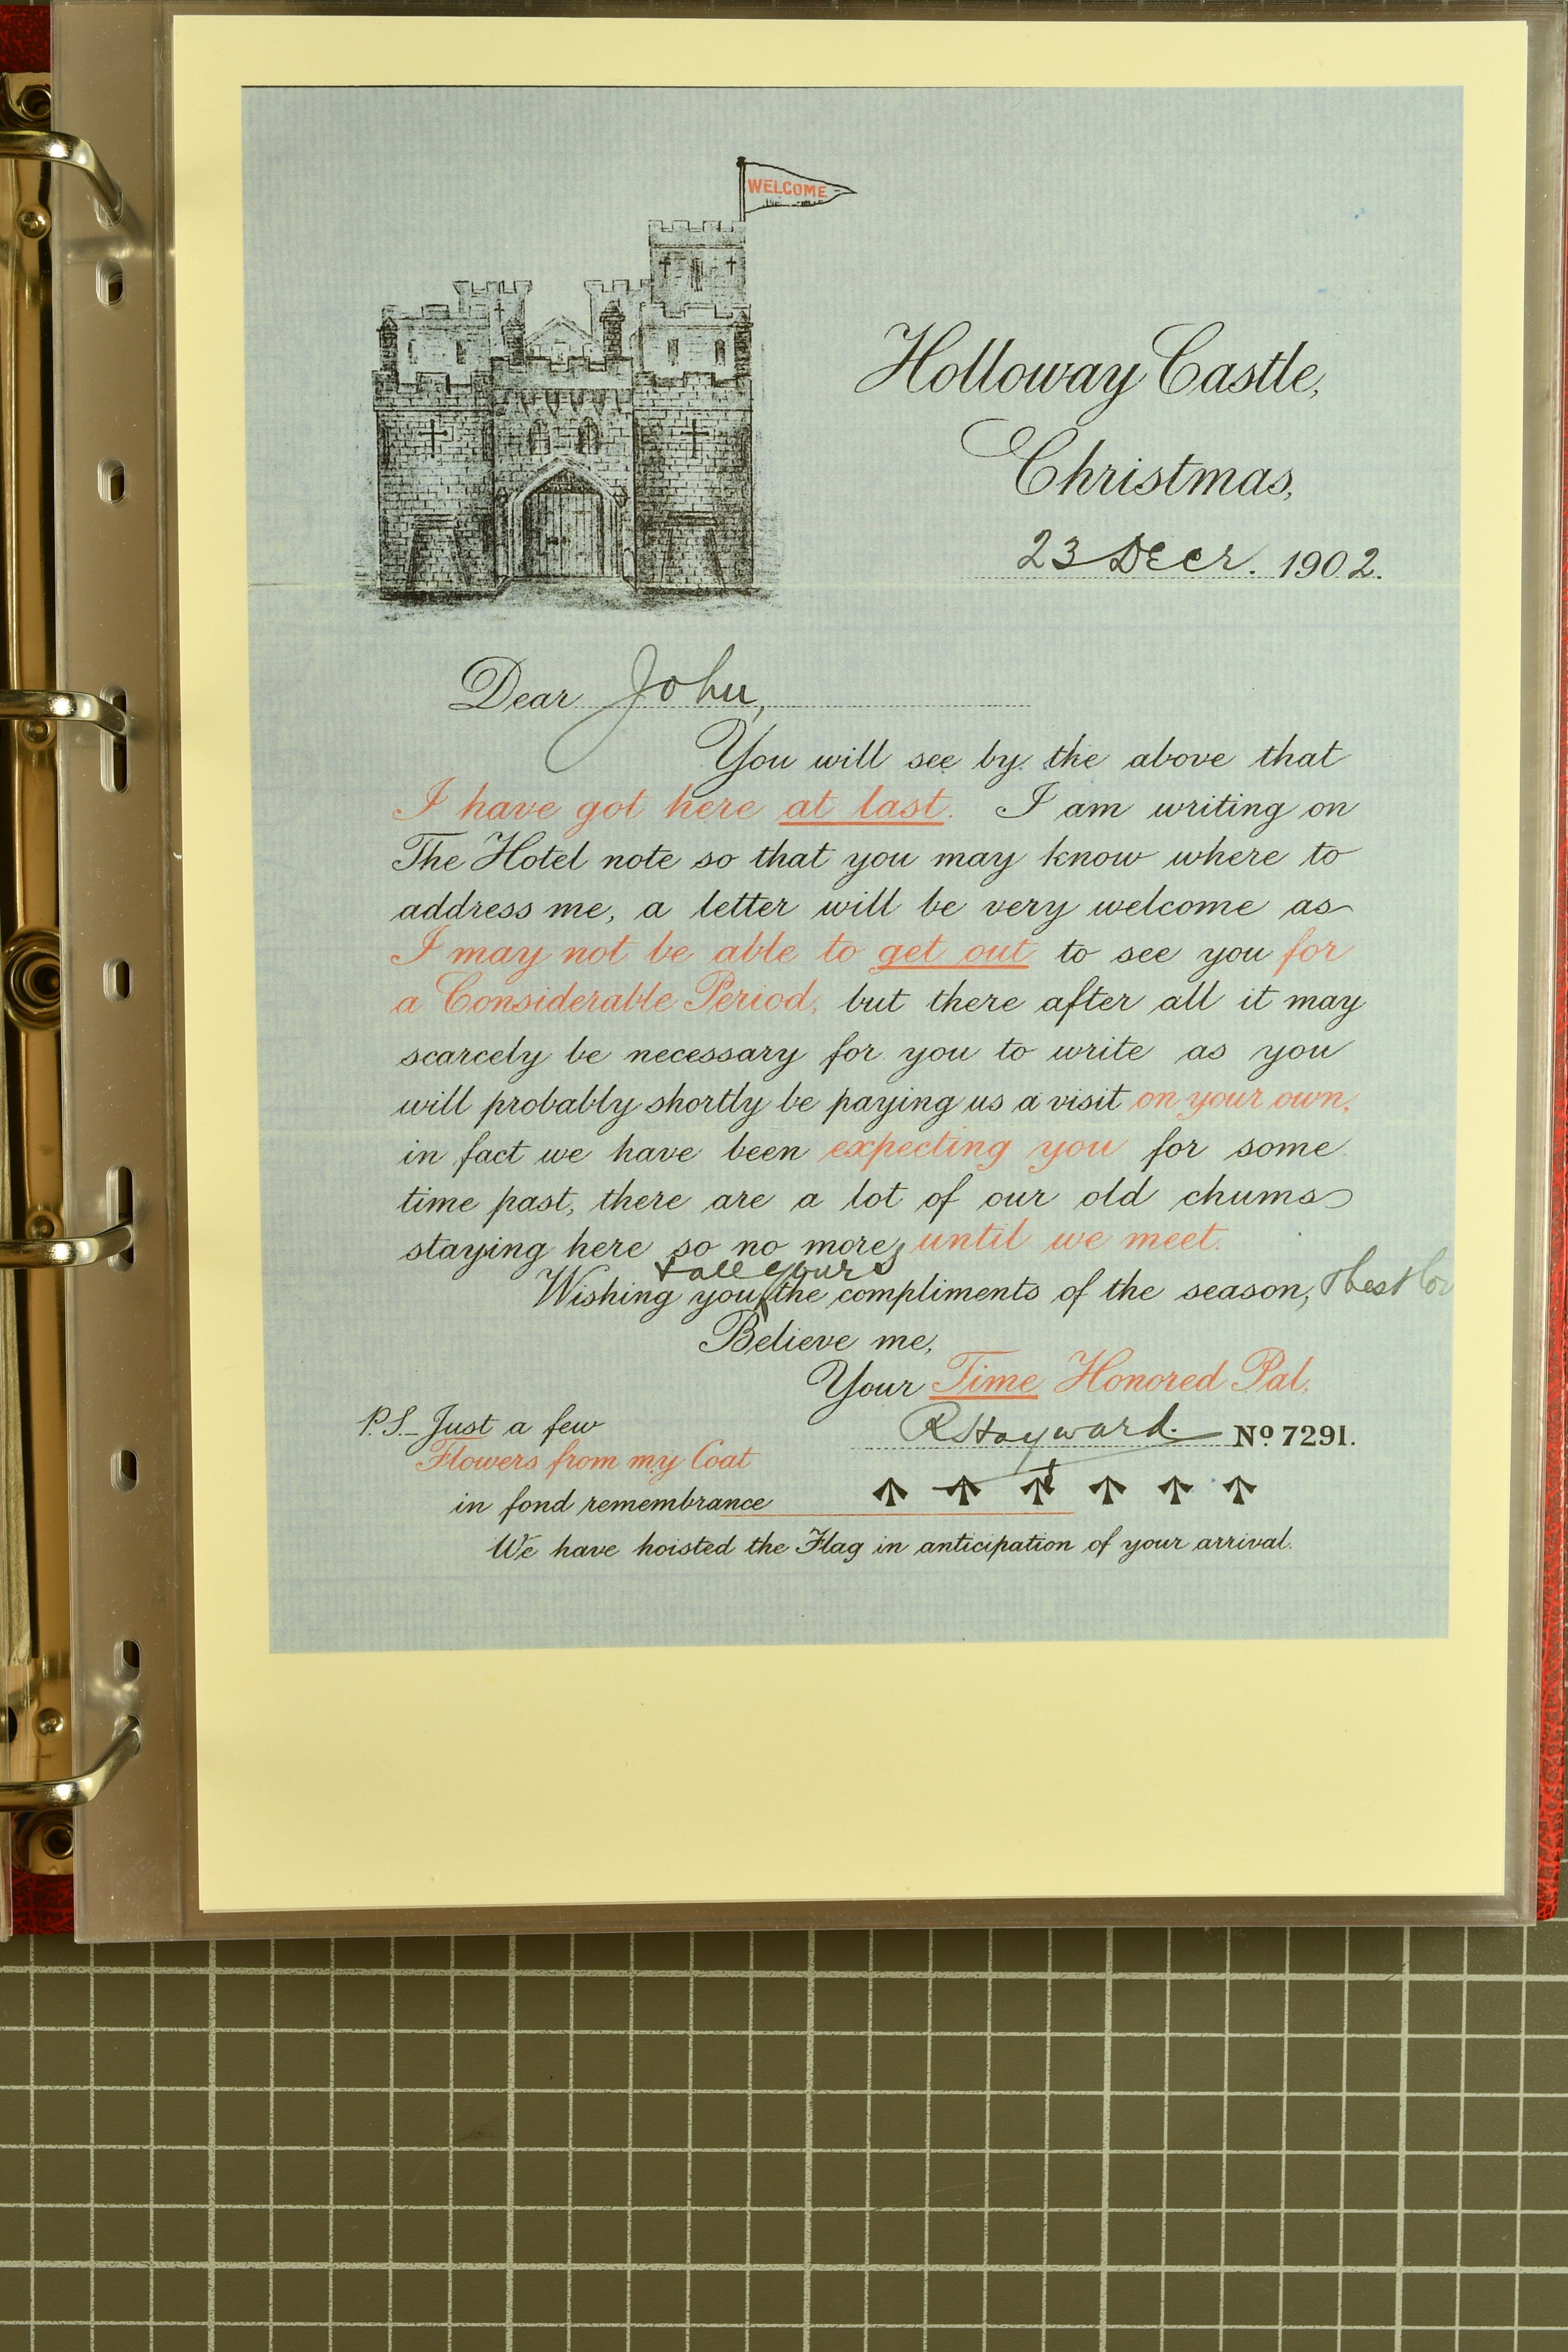 WELCOME
Holloway Castle,
Christmas,
23 Decr. 1902.
Dear John,
You will see by the above that
I have got here at last. I am writing on
The Hotel note so that you may know where to
address me, a letter will be very welcome as
I may not be able to get out to see you for
a Considerable Period, but there after all it may
scarcely be necessary for you to write as you
will probably shortly be paying us a visit on your own,
in fact we have been expecting you for some
time past, there are a lot of our old chums
staying here so no more, until we meet.
& all yours
Wishing you the compliments of the season, & best
Believe me,
Your Time Honored Pal,
RHayward. No 7291.
P.S. Just a few
Flowers from my Coat
in fond remembrance
We have hoisted the Flag in anticipation of your arrival.